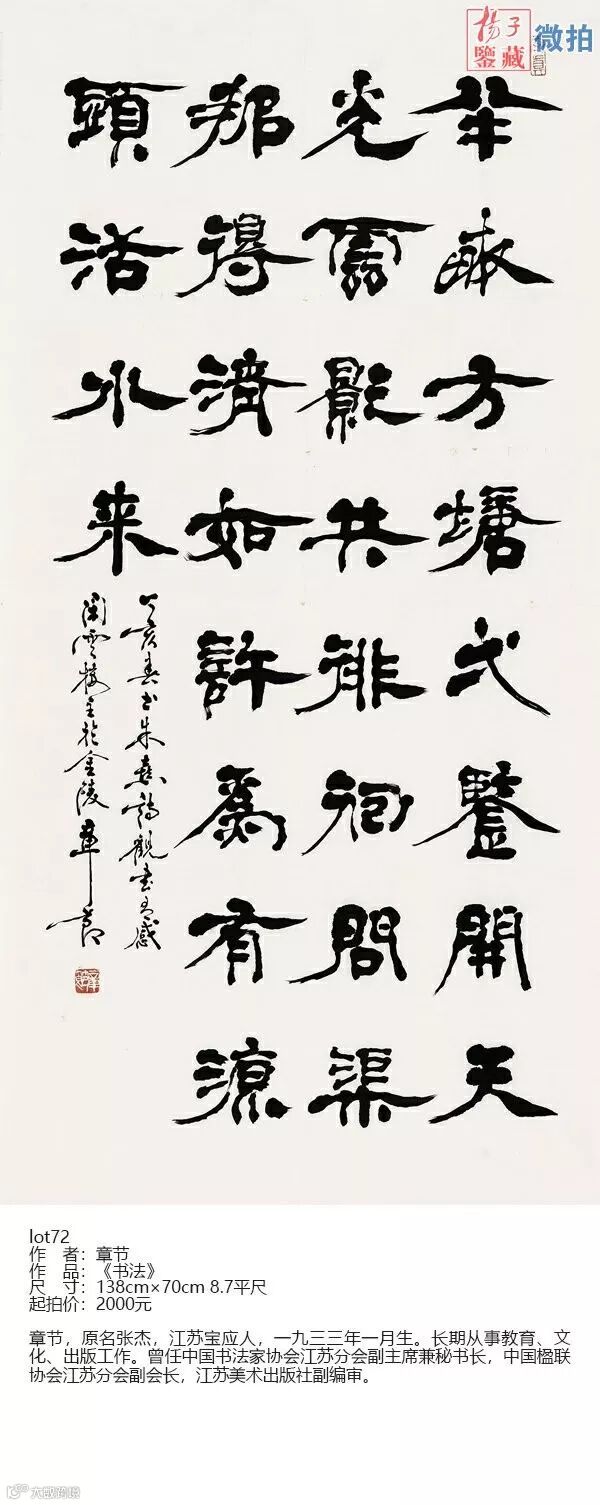 揚子
鑒藏
微拍
半畝方塘弌鑒開天
光雲影共徘徊問渠
那得清如許為有源
頭活水来
丁亥春书朱熹詩觀書有感
閑雲楼主於金陵章节
lot72
作 者：章节
作 品：《书法》
尺 寸：138cm×70cm 8.7平尺
起拍价：2000元
章节，原名张杰，江苏宝应人，一九三三年一月生。长期从事教育、文
化、出版工作。曾任中国书法家协会江苏分会副主席兼秘书长，中国楹联
协会江苏分会副会长，江苏美术出版社副编审。